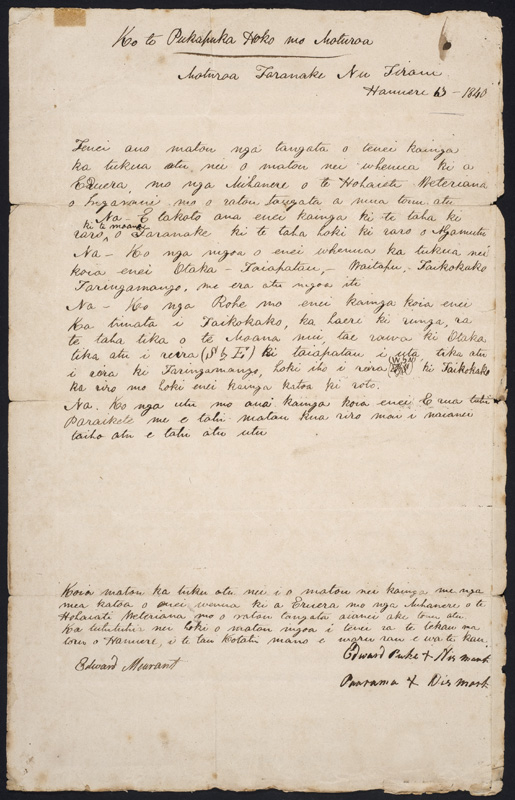 Ko te Pukapuka Hoko mo Moturoa
Moturoa Taranake Nu Tirani
Hanuere 13 - 1840
Tenei ano matou nga tangata o tenei kainga
ka tukua atu nei o matou nei whenua ki a
Eruera, mo nga Mihanere o te Hohaieti Weteriana
o Ingarani mo o ratou tangata a mua tonu atu
Na - E takoto ana enei kainga ki te taha ki
raro, ki te moana o Taranake ki te taha hoki ki raro o Ngamutu
Na - Ko nga ngoa o enei whenua ka tukua nei
koia enei Otaka - Taiapatau, - Waitapu, Taikokako
Taringamango, me era atu ngoa iti
Na - Ko nga Rohe mo enei kainga koia enei
Ka timata i Taikokako, ka haere ki runga, ra
te taha tika o te Moana nui, tae rawa ki Otaka
tika atu i reira (S b E) ki taiapatau i uta, tika atu
i reira ki Taringamango, hoki iho i reira ki Taikokako
ka riro mo hoki enei kainga katoa ki roto.
Na. Ko nga utu mo ana kainga koia enei E rua tahi
Paraikete me e tahi matou kua riro mai i naianei
taiho atu e tahi atu utu
Koia matou ka tuku atu nei i o matou nei kainga me nga
mea katoa o enei wenua ki a Eruera mo nga Mihanere o te
Hohaieti Weteriana, mo o ratou tangata aianei ake tonu atu.
Ka tuhituhi nei hoki o matou ngoa i tenei ra te tekau ma
toru o Hanuere, i te tau Kotahi mano e waru rau e wa te kau.
Edward Meurant
Edward Puke x His mark
Paarama x His mark